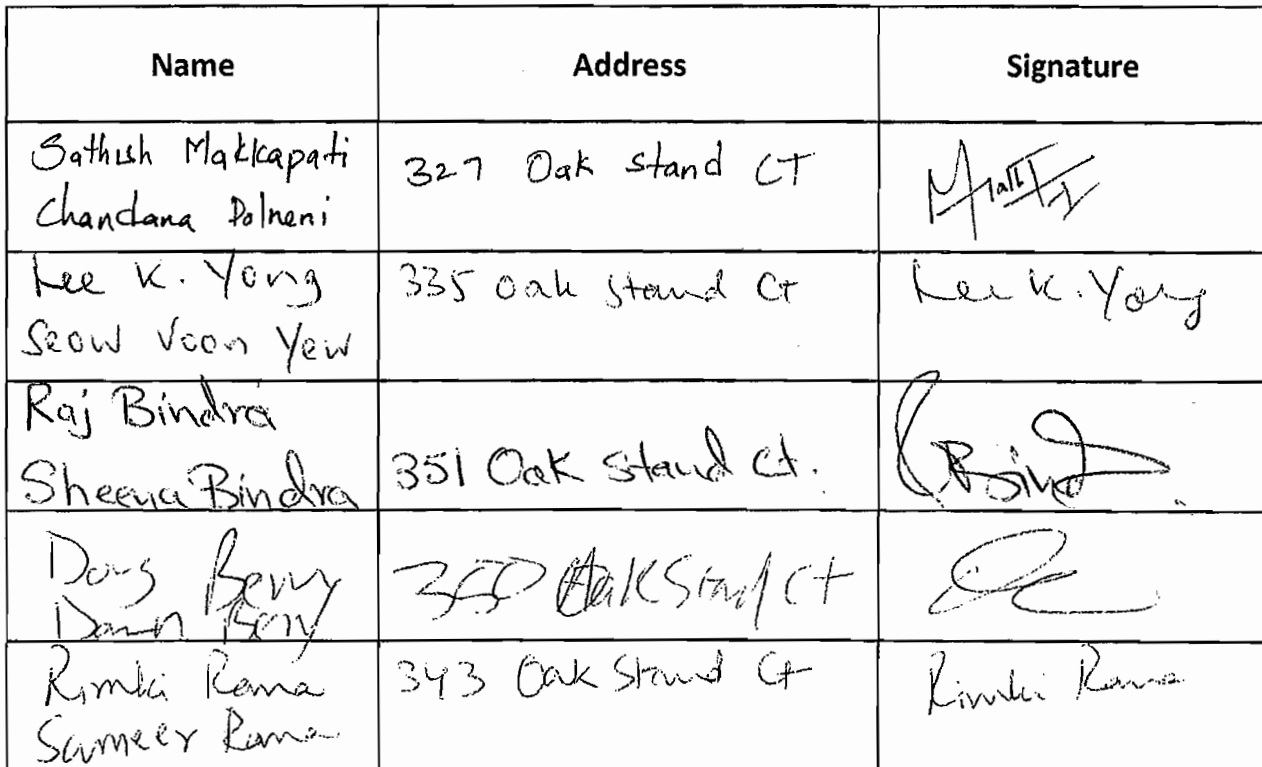 Name Address Signature
Sathish Makkapati
Chandana Polneni
327 Oak stand CT
Lee K. Yong
Seow Voon Yew
335 Oak stand Ct
Lee K. Yong
Raj Bindra
Sheena Bindra
351 Oak Stand Ct.
Doug Berry
Dawn Berry
350 Oak Stand Ct
Rimki Rana
Sameer Rana
343 Oak Stand Ct
Rimki Rana